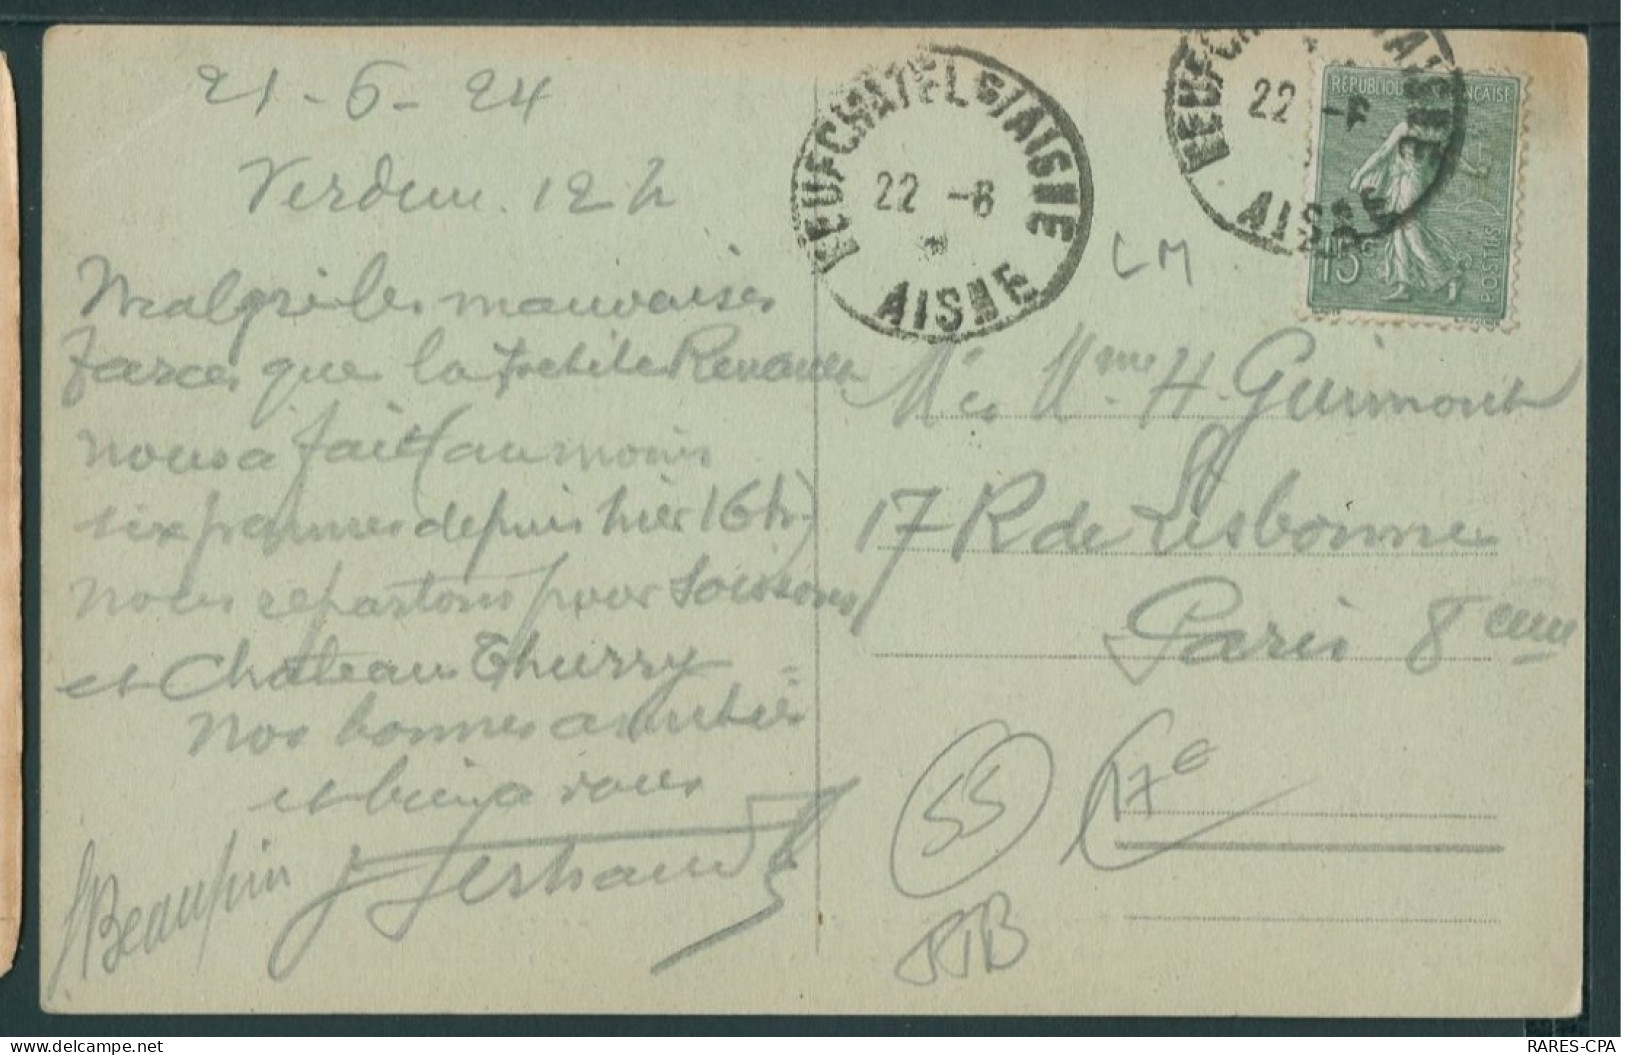 21-6-24
Verdun. 12 h
Malgré les mauvaises
farces que la petite Renault
nous a fait (au moins
six pannes depuis hier 16h)
nous repartons pour Soissons
et Chateau Thierry
Nos bonnes amitiés
et bien à vous
Beaupin
NEUFCHATEL S/AISNE
22 -6
AISNE
NEUFCH AISNE
22 -6
AISNE
REPUBLIQUE FRANÇAISE
15c
POSTES
LM
Mr et Mme H. Guimont
17 R de Lisbonne
Paris 8eme
55
17e
RARES-CPA